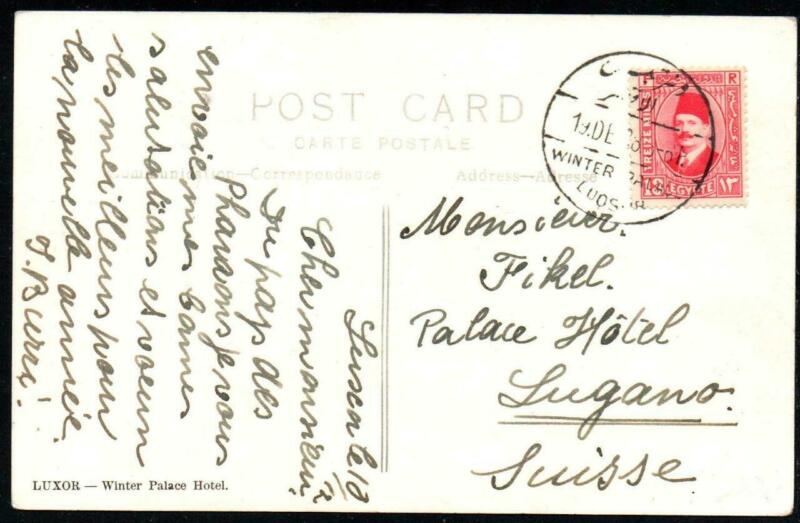 POST CARD
CARTE POSTALE
Communication—Correspondence
Address—Adresse
le 10
Cher monsieur.
Du pays des
Pharaons je vous
envoie mes bonnes
salutations et voeux
les meilleurs pour
la nouvelle année.
J. Burri
Monsieur
Fikel.
Palace Hôtel
Lugano.
Suisse
F R
TREIZE MILLS
EGYPTE ١٣
19 DE
WINTER PALACE
LUQSOR
LUXOR — Winter Palace Hotel.